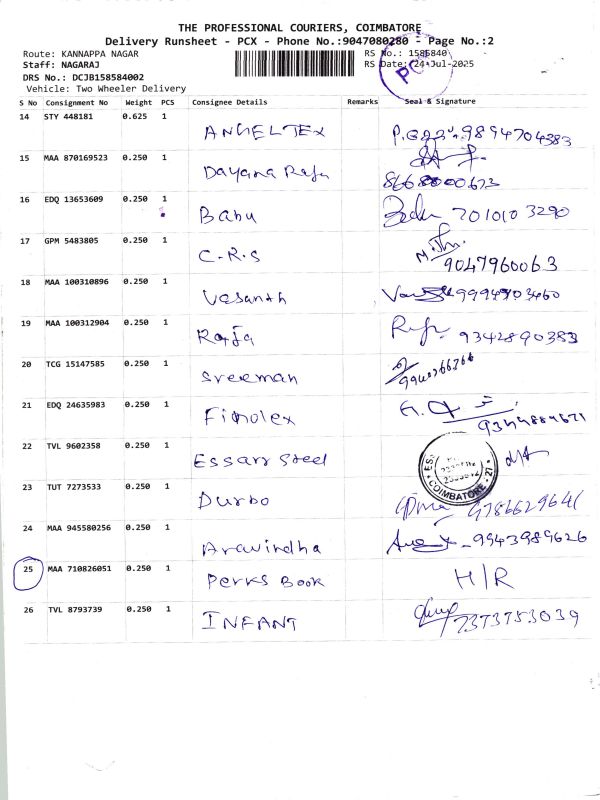 THE PROFESSIONAL COURIERS, COIMBATORE
Delivery Runsheet - PCX - Phone No.:9047080280 - Page No.:2
Route: KANNAPPA NAGAR RS No.: 1585840
Staff: NAGARAJ RS Date: 24-Jul-2025
DRS No.: DCJB158584002
Vehicle: Two Wheeler Delivery
S No Consignment No Weight PCS Consignee Details Remarks Seal & Signature
14 STY 448181 0.625 1 ANGELTEX 9894704383
15 MAA 870169523 0.250 1 Dayana Raja
16 EDQ 13653609 0.250 1 Babu 7010103290
17 GPM 5483805 0.250 1 C.R.S 9047960063
18 MAA 100310896 0.250 1 Vasanth
19 MAA 100312904 0.250 1 Raja 9342890383
20 TCG 15147585 0.250 1 Sreeman
21 EDQ 24635983 0.250 1 Finolex
22 TVL 9602358 0.250 1 Essarr Steel COIMBATORE
23 TUT 7273533 0.250 1 Durbo 9786629641
24 MAA 945580256 0.250 1 Aravindha 9943989626
25 MAA 710826051 0.250 1 Perks Book H/R
26 TVL 8793739 0.250 1 INFANT 7373753039